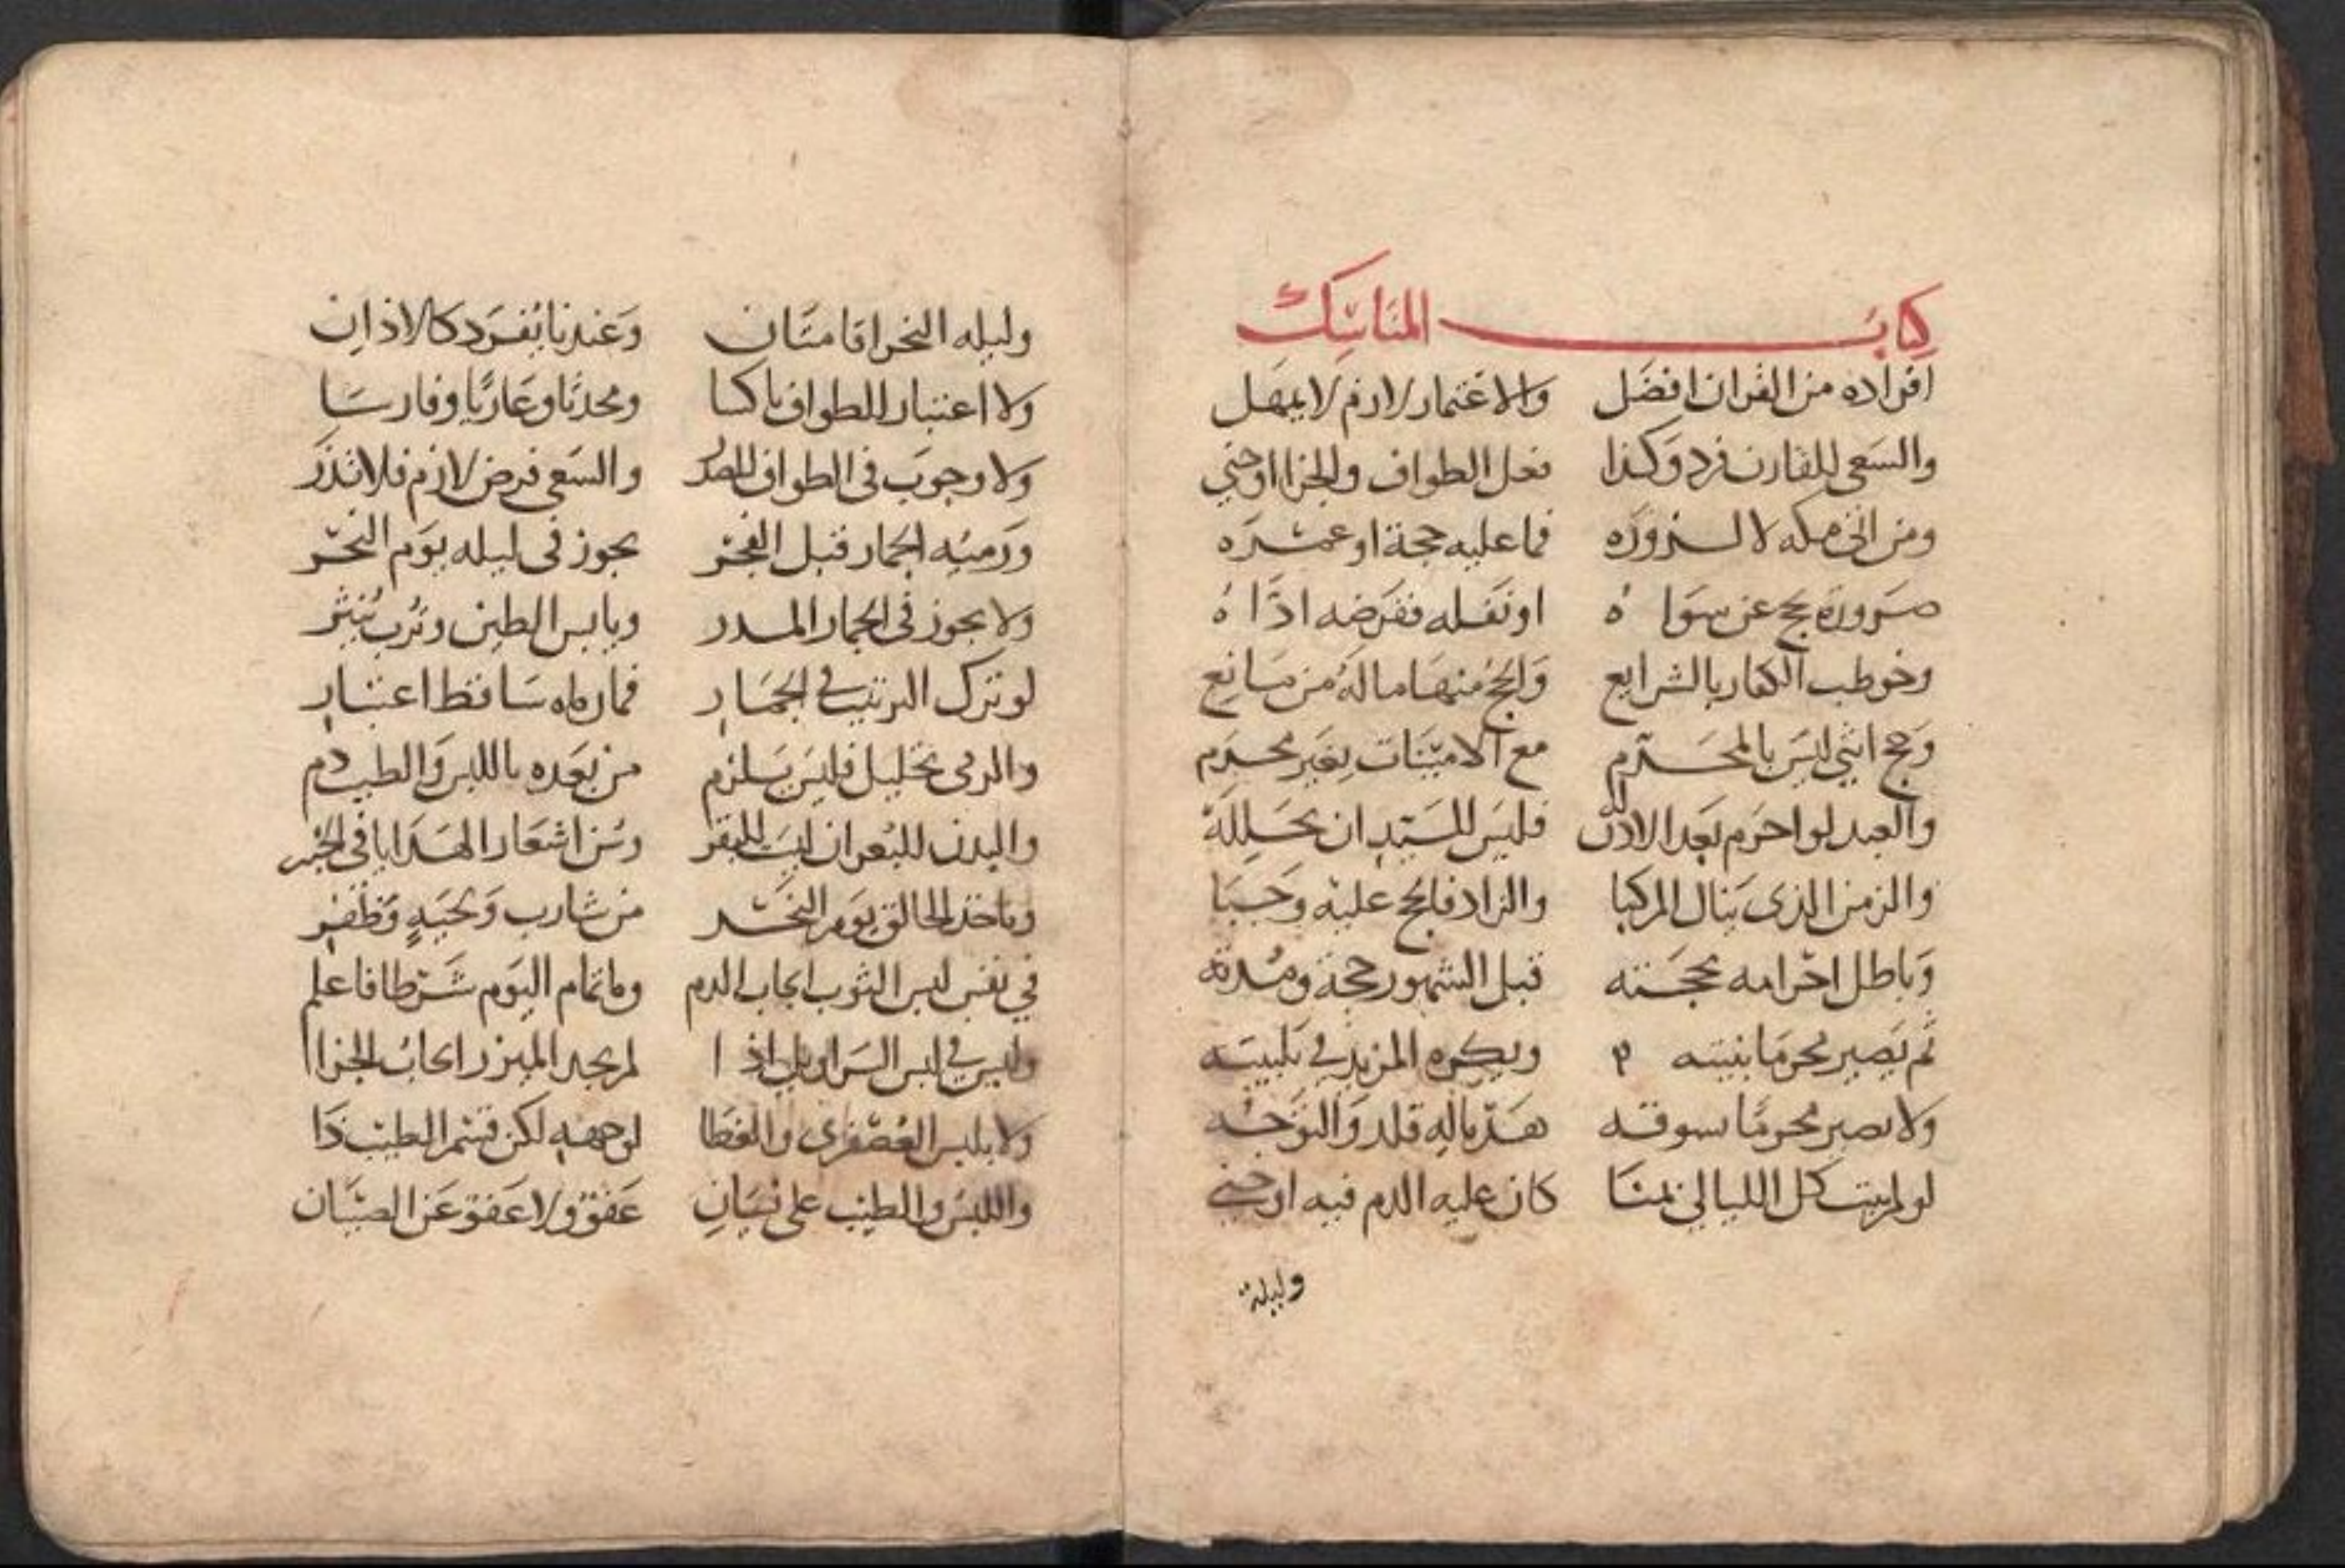 كتاب المناسك
افراده من القران افضل والاعتمار لازم لا يمهل
والسعى للقارن فرد وكذا فعل الطواف والجزا اذا جنى
ومن اتى مكه لا لنزوره فما عليه حجة او عمره
صروره حج عن سواه او نفله ففرضه اداه
وخوطب الكفار بالشرايع والحج منها ماله من مانع
وحج انثى ليس بالمحترم مع الامينات بغير محرم
والعبد لو احرم بعد الاذن له فليس للسيد ان يحلله
والزمن الذى ينال المركبا والزاد فالحج عليه وجبا
وباطل احرامه بحجته قبل الشهور حجة ومدته
ثم يصير محرما بنيته ويكره المزيد في تلبيته
ولا يصير محرما بسوقه هديا له قلد والتوجه
لو لم يبت كل الليالى بمنا كان عليه الدم فيه اذ جنى
وليلة
وليله النحر اقامتان وعندنا يفرد كالاذان
ولا اعتبار للطواف ناكسا ومحدثا وعاريا وفارسا
ولا وجوب فى الطواف للصدر والسعى فرض لازم فلا تذر
ورميه الجمار قبل الفجر يجوز فى ليله يوم النحر
ولا يجوز فى الجمار المدر ويابس الطين وترب ينثر
لو ترك الترتيب في الجمار فما رماه ساقط اعتبار
والرمى تحليل فليس يلزم من بعده باللبس والطيب دم
والبدن للبعران ليست للبقر وسن اشعار الهدايا فى الخبر
وياخذ الحالق يوم النحر من شارب ولحية وظفر
في نفس لبس الثوب ايجاب الدم وما تمام اليوم شرطا فاعلم
وليس في لبس السراويل اذا لم يجد الميزر ايجاب الجزا
ولا بلبس العصفرى والغطا لوجهه لكن فى شم الطيب ذا
واللبس والطيب على نسيان عفو ولا عفو عن الصبيان